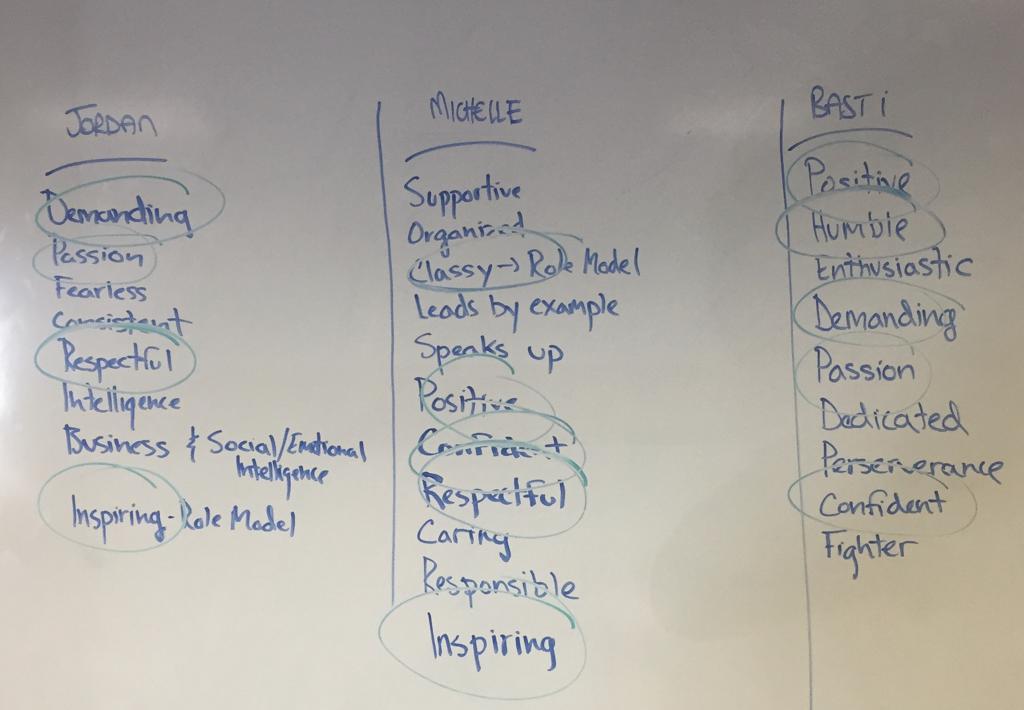 JORDAN
Demanding
Passion
Fearless
Consistent
Respectful
Intelligence
Business & Social/Emotional
Intelligence
Inspiring - Role Model
MICHELLE
Supportive
Organized
Classy → Role Model
Leads by example
Speaks up
Positive
Confident
Respectful
Caring
Responsible
Inspiring
BASTi
Positive
Humble
Enthusiastic
Demanding
Passion
Dedicated
Perserverance
Confident
Fighter